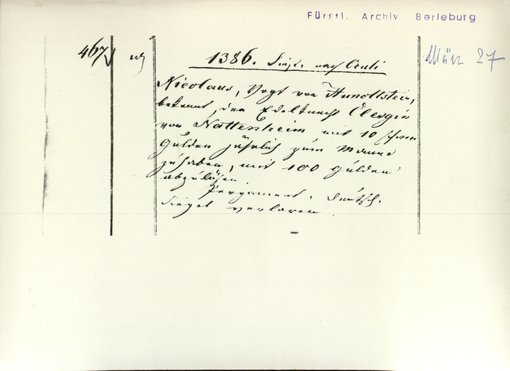 Fürstl. Archiv Berleburg
467
1386. nach Oculi
März 27
Nicolaus, Vogt von Hunoltstein,
bekennt, den Edelknecht Clesgin
von Nattenheim mit 10
Gulden jährlich zum Manne
zu haben, mit 100 Gulden
abzulösen.
Pergament. Deutsch.
Siegel verloren.